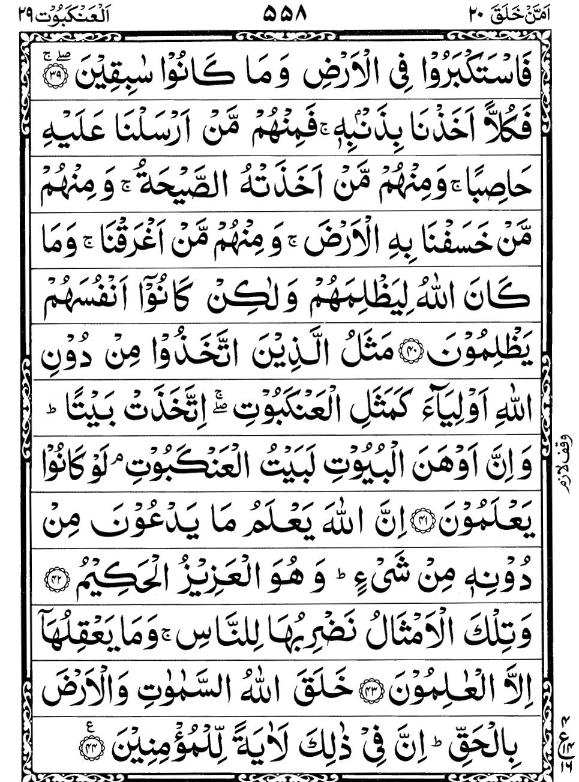 اَمَّنْ خَلَقَ ٢٠ ٥٥٨ اَلْعَنْكَبُوْت ٢٩
فَاسْتَكْبَرُوْا فِى الْاَرْضِ وَمَا كَانُوْا سٰبِقِيْنَ ۖۚ ﴿٣٩﴾
فَكُلًّا اَخَذْنَا بِذَنْۢبِهٖ ۚ فَمِنْهُمْ مَّنْ اَرْسَلْنَا عَلَيْهِ
حَاصِبًا ۚ وَمِنْهُمْ مَّنْ اَخَذَتْهُ الصَّيْحَةُ ۚ وَمِنْهُمْ
مَّنْ خَسَفْنَا بِهِ الْاَرْضَ ۚ وَمِنْهُمْ مَّنْ اَغْرَقْنَا ۚ وَمَا
كَانَ اللّٰهُ لِيَظْلِمَهُمْ وَلٰكِنْ كَانُوْۤا اَنْفُسَهُمْ
يَظْلِمُوْنَ ﴿٤٠﴾ مَثَلُ الَّذِيْنَ اتَّخَذُوْا مِنْ دُوْنِ
اللّٰهِ اَوْلِيَآءَ كَمَثَلِ الْعَنْكَبُوْتِ ۖۚ اِتَّخَذَتْ بَيْتًا ؕ
وَاِنَّ اَوْهَنَ الْبُيُوْتِ لَبَيْتُ الْعَنْكَبُوْتِ ۘ لَوْ كَانُوْا
يَعْلَمُوْنَ ﴿٤١﴾ اِنَّ اللّٰهَ يَعْلَمُ مَا يَدْعُوْنَ مِنْ
دُوْنِهٖ مِنْ شَىْءٍ ؕ وَهُوَ الْعَزِيْزُ الْحَكِيْمُ ﴿٤٢﴾
وَتِلْكَ الْاَمْثَالُ نَضْرِبُهَا لِلنَّاسِ ۚ وَمَا يَعْقِلُهَاۤ
اِلَّا الْعٰلِمُوْنَ ﴿٤٣﴾ خَلَقَ اللّٰهُ السَّمٰوٰتِ وَالْاَرْضَ
بِالْحَقِّ ؕ اِنَّ فِىْ ذٰلِكَ لَاٰيَةً لِّلْمُؤْمِنِيْنَ ﴿٤٤﴾ ع
وقف لازم
٤
ع ١٤
١٦